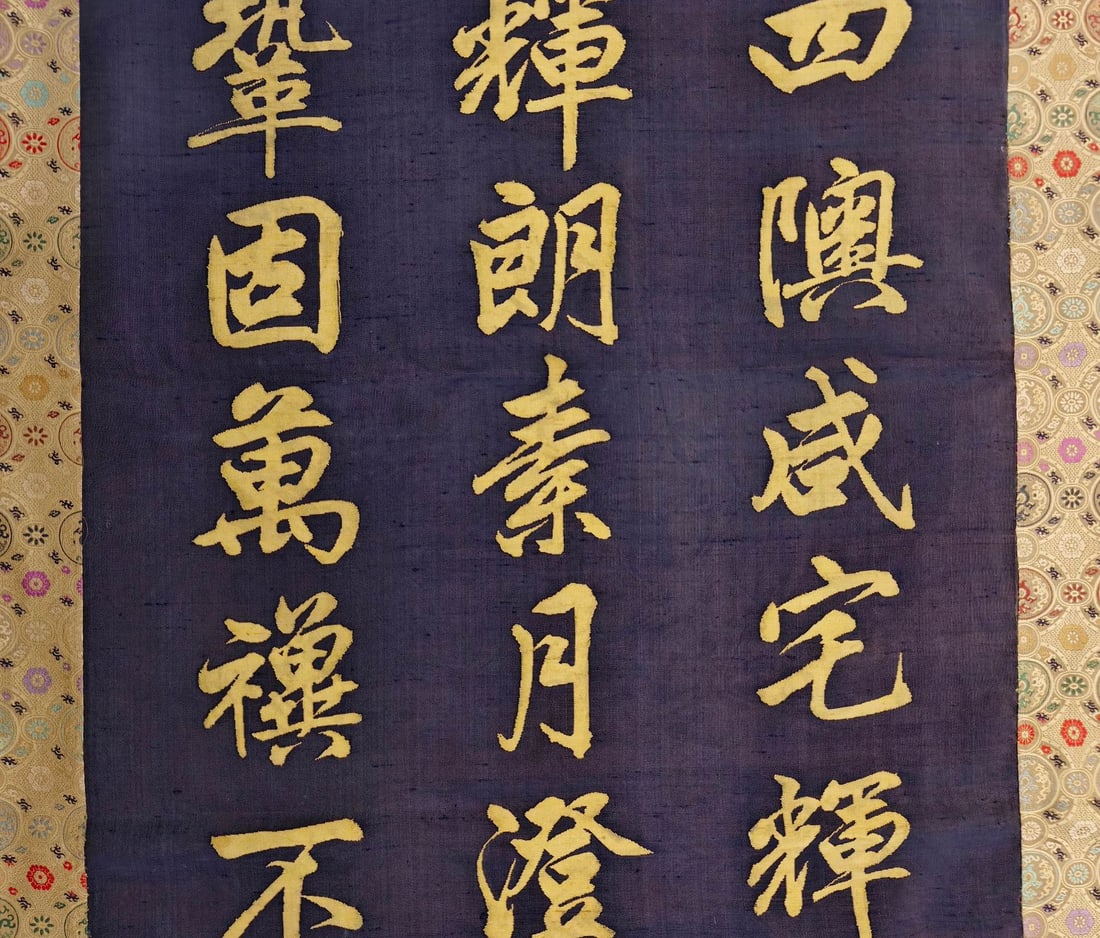 四隩咸宅輝
輝朗素月澄
鞏固萬禩不